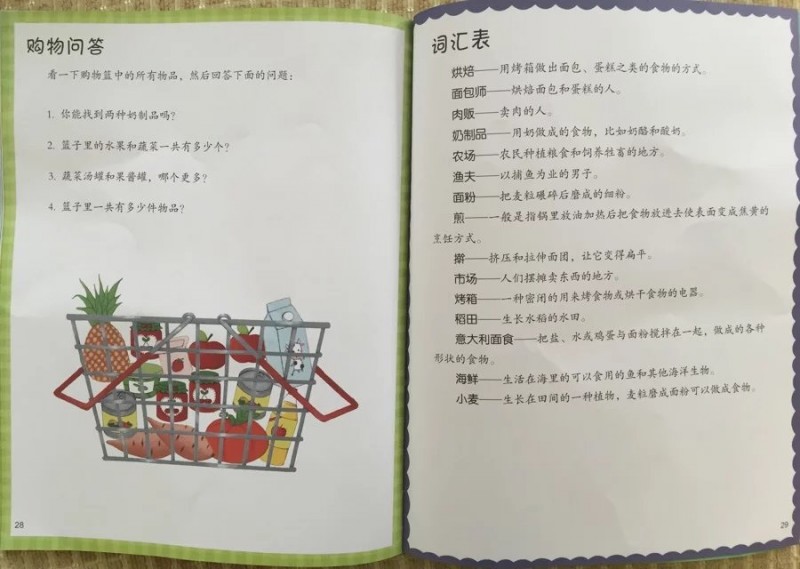 购物问答
看一下购物篮中的所有物品，然后回答下面的问题：
1. 你能找到两种奶制品吗？
2. 篮子里的水果和蔬菜一共有多少个？
3. 蔬菜汤罐和果酱罐，哪个更多？
4. 篮子里一共有多少件物品？
28
词汇表
烘焙——用烤箱做出面包、蛋糕之类的食物的方式。
面包师——烘焙面包和蛋糕的人。
肉贩——卖肉的人。
奶制品——用奶做成的食物，比如奶酪和酸奶。
农场——农民种植粮食和饲养牲畜的地方。
渔夫——以捕鱼为业的男子。
面粉——把麦粒碾碎后磨成的细粉。
煎——一般是指锅里放油加热后把食物放进去使表面变成焦黄的
烹饪方式。
擀——挤压和拉伸面团，让它变得扁平。
市场——人们摆摊卖东西的地方。
烤箱——一种密闭的用来烤食物或烘干食物的电器。
稻田——生长水稻的水田。
意大利面食——把盐、水或鸡蛋与面粉搅拌在一起，做成的各种
形状的食物。
海鲜——生活在海里的可以食用的鱼和其他海洋生物。
小麦——生长在田间的一种植物，麦粒磨成面粉可以做成食物。
29